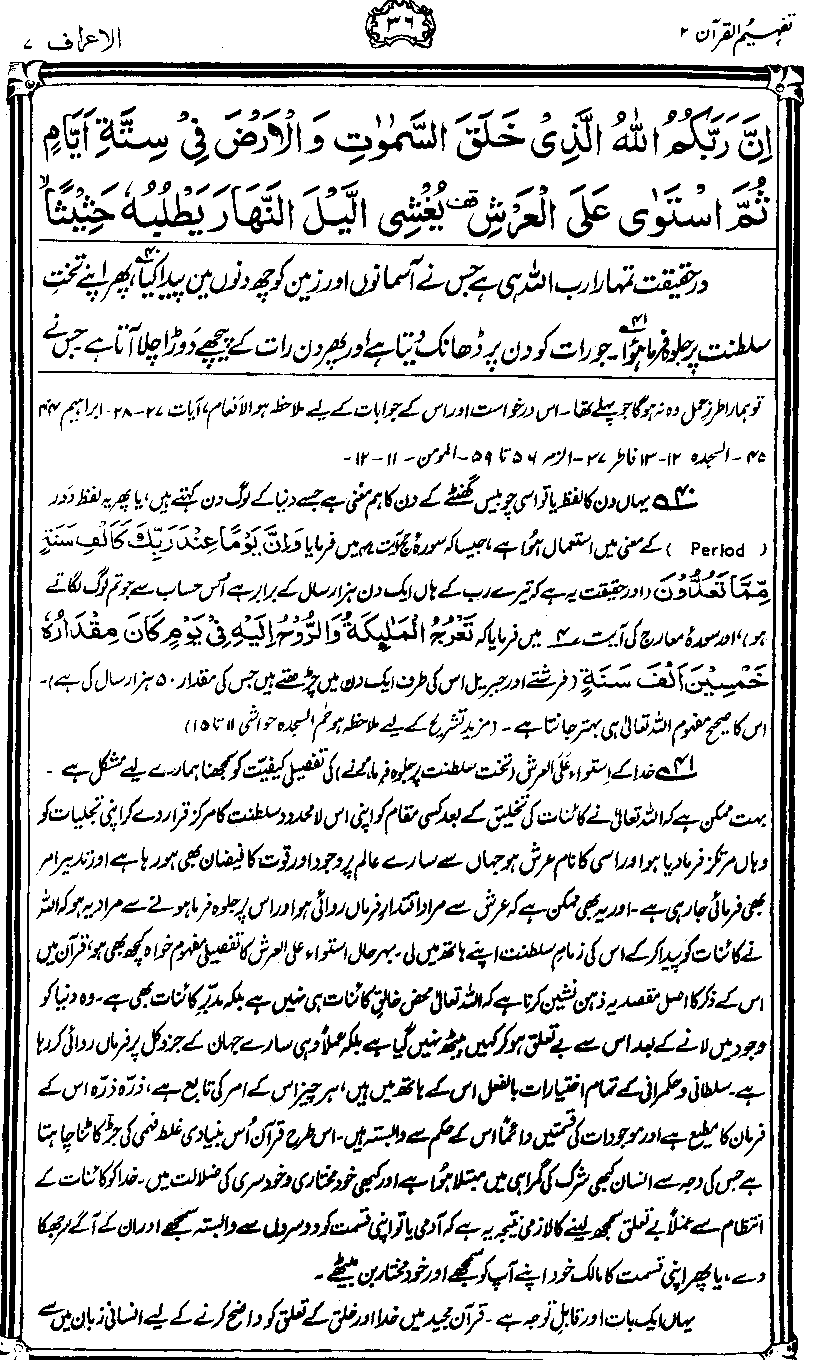 تفہیم القرآن ۲
۳۶
الاعراف ۷
اِنَّ رَبَّكُمُ اللّٰهُ الَّذِیْ خَلَقَ السَّمٰوٰتِ وَالْاَرْضَ فِیْ سِتَّةِ اَیَّامٍ
ثُمَّ اسْتَوٰی عَلَی الْعَرْشِ یُغْشِی الَّیْلَ النَّهَارَ یَطْلُبُهٗ حَثِیْثًا
درحقیقت تمہارا رب اللہ ہی ہے جس نے آسمانوں اور زمین کو چھ دنوں میں پیدا کیا۴۰، پھر اپنے تختِ
سلطنت پر جلوہ فرما ہوا۴۱۔ جو رات کو دن پر ڈھانک دیتا ہے اور پھر دن رات کے پیچھے دَوڑا چلا آتا ہے جس نے
تو ہمارا طرزِ عمل وہ نہ ہوگا جو پہلے تھا۔ اس درخواست اور اس کے جوابات کے لیے ملاحظہ ہو الانعام، آیات ۲۷-۲۸۔ ابراہیم ۴۴
۴۵۔ السجدہ ۱۲-۱۳ فاطر ۳۷۔ الزمر ۵۶ تا ۵۹۔ المومن۔ ۱۱-۱۲۔
۴۰ یہاں دن کا لفظ یا تو اسی چوبیس گھنٹے کے دن کا ہم معنی ہے جسے دنیا کے لوگ دن کہتے ہیں، یا پھر یہ لفظ دَور
( Period ) کے معنی میں استعمال ہوا ہے، جیسا کہ سورۂ حج آیت ۴۷ میں فرمایا وَاِنَّ یَوْمًا عِنْدَ رَبِّكَ كَاَلْفِ سَنَةٍ
مِّمَّا تَعُدُّوْنَ (اور حقیقت یہ ہے کہ تیرے رب کے ہاں ایک دن ہزار سال کے برابر ہے اُس حساب سے جو تم لوگ لگاتے
ہو)، اور سورۂ معارج کی آیت ۴ میں فرمایا کہ تَعْرُجُ الْمَلٰٓئِكَةُ وَالرُّوْحُ اِلَیْهِ فِیْ یَوْمٍ كَانَ مِقْدَارُهٗ
خَمْسِیْنَ اَلْفَ سَنَةٍ (فرشتے اور جبریل اس کی طرف ایک دن میں چڑھتے ہیں جس کی مقدار ۵۰ ہزار سال کی ہے)۔
اس کا صحیح مفہوم اللہ تعالیٰ ہی بہتر جانتا ہے۔ (مزید تشریح کے لیے ملاحظہ ہو حٰم السجدہ حواشی ۱۱ تا ۱۵)
۴۱ خدا کے اِستواء علی العرش (تختِ سلطنت پر جلوہ فرما ہونے) کی تفصیلی کیفیت کو سمجھنا ہمارے لیے مشکل ہے۔
بہت ممکن ہے کہ اللہ تعالیٰ نے کائنات کی تخلیق کے بعد کسی مقام کو اپنی اس لامحدود سلطنت کا مرکز قرار دے کر اپنی تجلیات کو
وہاں مرتکز فرما دیا ہو اور اسی کا نام عرش ہو جہاں سے سارے عالم پر وجود اور قوت کا فیضان بھی ہو رہا ہے اور تدبیر امر
بھی فرمائی جا رہی ہے۔ اور یہ بھی ممکن ہے کہ عرش سے مراد اقتدار فرماں روائی ہو اور اس پر جلوہ فرما ہونے سے مراد یہ ہو کہ اللہ
نے کائنات کو پیدا کر کے اس کی زمامِ سلطنت اپنے ہاتھ میں لی۔ بہرحال استواء علی العرش کا تفصیلی مفہوم خواہ کچھ بھی ہو، قرآن میں
اس کے ذکر کا اصل مقصد یہ ذہن نشین کرنا ہے کہ اللہ تعالیٰ محض خالقِ کائنات ہی نہیں ہے بلکہ مدبّرِ کائنات بھی ہے۔ وہ دنیا کو
وجود میں لانے کے بعد اس سے بے تعلق ہو کر کہیں بیٹھ نہیں گیا ہے بلکہ عملاً وہی سارے جہان کے جزو کل پر فرماں روائی کر رہا
ہے۔ سلطانی و حکمرانی کے تمام اختیارات بالفعل اس کے ہاتھ میں ہیں، ہر چیز اس کے امر کی تابع ہے، ذرّہ ذرّہ اس کے
فرمان کا مطیع ہے اور موجودات کی قسمتیں دائماً اس کے حکم سے وابستہ ہیں۔ اس طرح قرآن اُس بنیادی غلط فہمی کی جڑ کاٹنا چاہتا
ہے جس کی وجہ سے انسان کبھی شرک کی گمراہی میں مبتلا ہوا ہے اور کبھی خود مختاری و خود سری کی ضلالت میں۔ خدا کو کائنات کے
انتظام سے عملاً بے تعلق سمجھ لینے کا لازمی نتیجہ یہ ہے کہ آدمی یا تو اپنی قسمت کو دوسروں سے وابستہ سمجھے اور ان کے آگے سر جھکا
دے، یا پھر اپنی قسمت کا مالک خود اپنے آپ کو سمجھے اور خود مختار بن بیٹھے۔
یہاں ایک بات اور قابلِ توجہ ہے۔ قرآن مجید میں خدا اور خلق کے تعلق کو واضح کرنے کے لیے انسانی زبان میں سے